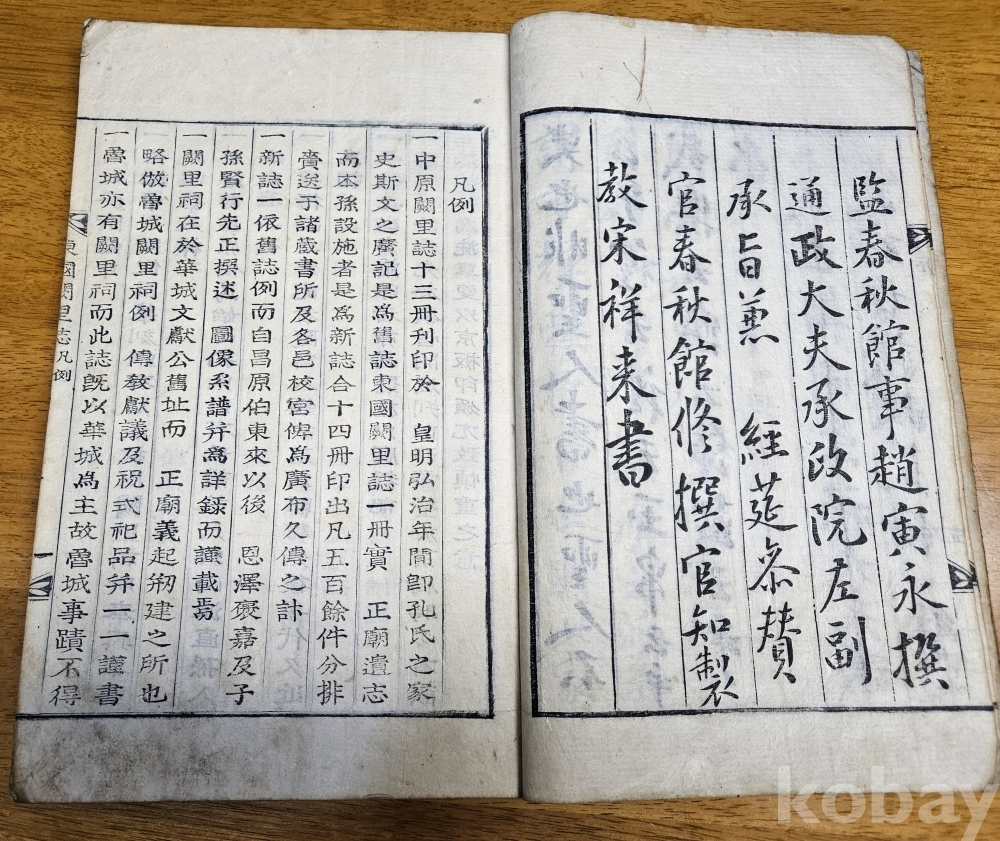 監春秋館事趙寅永撰
通政大夫承政院左副
承旨兼 經筵參贊
官春秋館修撰官知製
教宋祥來書
凡例
一中原闕里誌十三冊刊印於 皇明弘治年間卽孔氏之家
史斯文之廣記是爲舊誌東國闕里誌一冊實 正廟遺志
而本孫設施者是爲新誌合十四冊印出凡五百餘件分排
賫送于諸藏書所及各邑校宮俾爲廣布久傳之計
一新誌一依舊誌例而自昌原伯東來以後 恩澤褒嘉及子
孫賢行先正撰述圖像系譜幷爲詳錄而謹載焉
一闕里祠在於華城文獻公舊址而 正廟義起刱建之所也
略倣魯城闕里祠例 傳敎獻議及祝式祀品幷一一謹書
一魯城亦有闕里祠而此誌旣以華城爲主故魯城事蹟不得
東國闕里志凡例
一
kobay